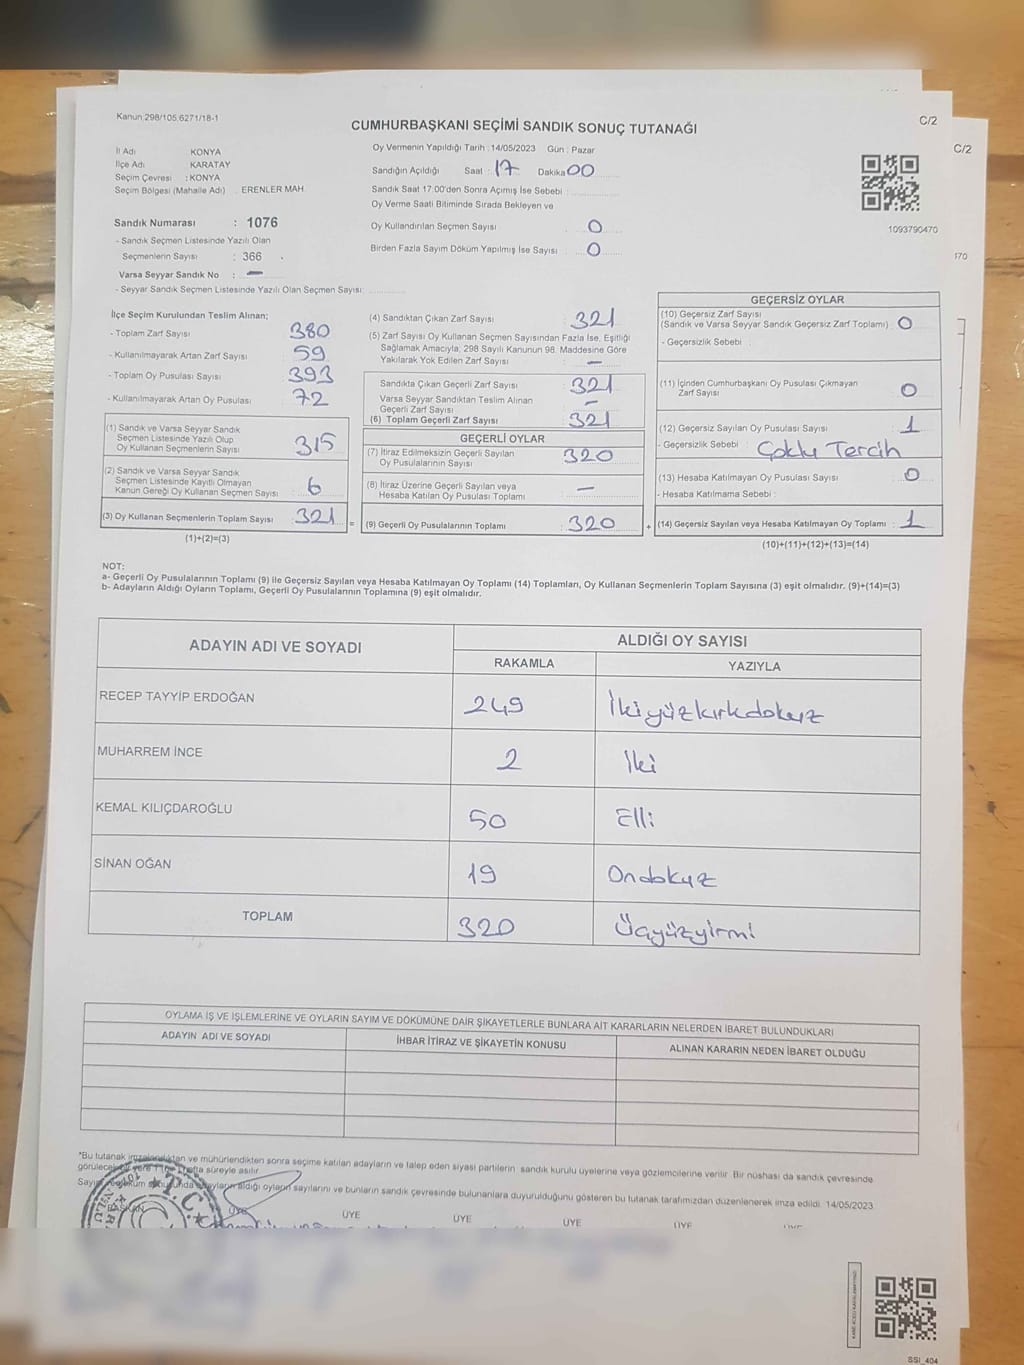 Kanun:298/105,6271/18-1
C/2
C/2
CUMHURBAŞKANI SEÇİMİ SANDIK SONUÇ TUTANAĞI
İl Adı KONYA
İlçe Adı KARATAY
Seçim Çevresi : KONYA
Seçim Bölgesi (Mahalle Adı) . ERENLER MAH.
Oy Vermenin Yapıldığı Tarih :14/05/2023 Gün : Pazar
Sandığın Açıldığı Saat : 17 Dakika 00
Sandık Saat 17:00'den Sonra Açılmış İse Sebebi :
Oy Verme Saati Bitiminde Sırada Bekleyen ve
Oy Kullandırılan Seçmen Sayısı : 0
Birden Fazla Sayım Döküm Yapılmış İse Sayısı : 0
1093790470
170
Sandık Numarası : 1076
- Sandık Seçmen Listesinde Yazılı Olan
Seçmenlerin Sayısı : 366
Varsa Seyyar Sandık No : —
- Seyyar Sandık Seçmen Listesinde Yazılı Olan Seçmen Sayısı:
İlçe Seçim Kurulundan Teslim Alınan;
- Toplam Zarf Sayısı : 380
- Kullanılmayarak Artan Zarf Sayısı : 59
- Toplam Oy Pusulası Sayısı : 393
- Kullanılmayarak Artan Oy Pusulası : 72
(1) Sandık ve Varsa Seyyar Sandık
Seçmen Listesinde Yazılı Olup
Oy Kullanan Seçmenlerin Sayısı : 315
(2) Sandık ve Varsa Seyyar Sandık
Seçmen Listesinde Kayıtlı Olmayan
Kanun Gereği Oy Kullanan Seçmen Sayısı : 6
(3) Oy Kullanan Seçmenlerin Toplam Sayısı : 321 =
(1)+(2)=(3)
(4) Sandıktan Çıkan Zarf Sayısı : 321
(5) Zarf Sayısı Oy Kullanan Seçmen Sayısından Fazla İse, Eşitliği
Sağlamak Amacıyla, 298 Sayılı Kanunun 98. Maddesine Göre
Yakılarak Yok Edilen Zarf Sayısı : —
Sandıkta Çıkan Geçerli Zarf Sayısı : 321
Varsa Seyyar Sandıktan Teslim Alınan
Geçerli Zarf Sayısı : —
(6) Toplam Geçerli Zarf Sayısı : 321
GEÇERLİ OYLAR
(7) İtiraz Edilmeksizin Geçerli Sayılan
Oy Pusulalarının Sayısı : 320
(8) İtiraz Üzerine Geçerli Sayılan veya
Hesaba Katılan Oy Pusulası Toplamı : —
(9) Geçerli Oy Pusulalarının Toplamı : 320 +
GEÇERSİZ OYLAR
(10) Geçersiz Zarf Sayısı
(Sandık ve Varsa Seyyar Sandık Geçersiz Zarf Toplamı) : 0
- Geçersizlik Sebebi :
(11) İçinden Cumhurbaşkanı Oy Pusulası Çıkmayan
Zarf Sayısı : 0
(12) Geçersiz Sayılan Oy Pusulası Sayısı : 1
- Geçersizlik Sebebi : Çoklu Tercih
(13) Hesaba Katılmayan Oy Pusulası Sayısı : 0
- Hesaba Katılmama Sebebi :
(14) Geçersiz Sayılan veya Hesaba Katılmayan Oy Toplamı : 1
(10)+(11)+(12)+(13)=(14)
NOT:
a- Geçerli Oy Pusulalarının Toplamı (9) ile Geçersiz Sayılan veya Hesaba Katılmayan Oy Toplamı (14) Toplamları, Oy Kullanan Seçmenlerin Toplam Sayısına (3) eşit olmalıdır. (9)+(14)=(3)
b- Adayların Aldığı Oyların Toplamı, Geçerli Oy Pusulalarının Toplamına (9) eşit olmalıdır.
ADAYIN ADI VE SOYADI ALDIĞI OY SAYISI
RAKAMLA YAZIYLA
RECEP TAYYİP ERDOĞAN 249 İkiyüzkırkdokuz
MUHARREM İNCE 2 İki
KEMAL KILIÇDAROĞLU 50 Elli
SİNAN OĞAN 19 Ondokuz
TOPLAM 320 Üçyüzyirmi
OYLAMA İŞ VE İŞLEMLERİNE VE OYLARIN SAYIM VE DÖKÜMÜNE DAİR ŞİKAYETLERLE BUNLARA AİT KARARLARIN NELERDEN İBARET BULUNDUKLARI
ADAYIN ADI VE SOYADI İHBAR İTİRAZ VE ŞİKAYETİN KONUSU ALINAN KARARIN NEDEN İBARET OLDUĞU
*Bu tutanak imzalandıktan ve mühürlendikten sonra seçime katılan adayların ve talep eden siyasi partilerin sandık kurulu üyelerine veya gözlemcilerine verilir. Bir nüshası da sandık çevresinde
görülecek bir yere hafta süreyle asılır.
adayların aldığı oyların sayılarını ve bunların sandık çevresinde bulunanlara duyurulduğunu gösteren bu tutanak tarafımızdan düzenlenerek imza edildi. 14/05/2023
BAŞKAN ÜYE ÜYE ÜYE ÜYE ÜYE
T.C.
SSI_404